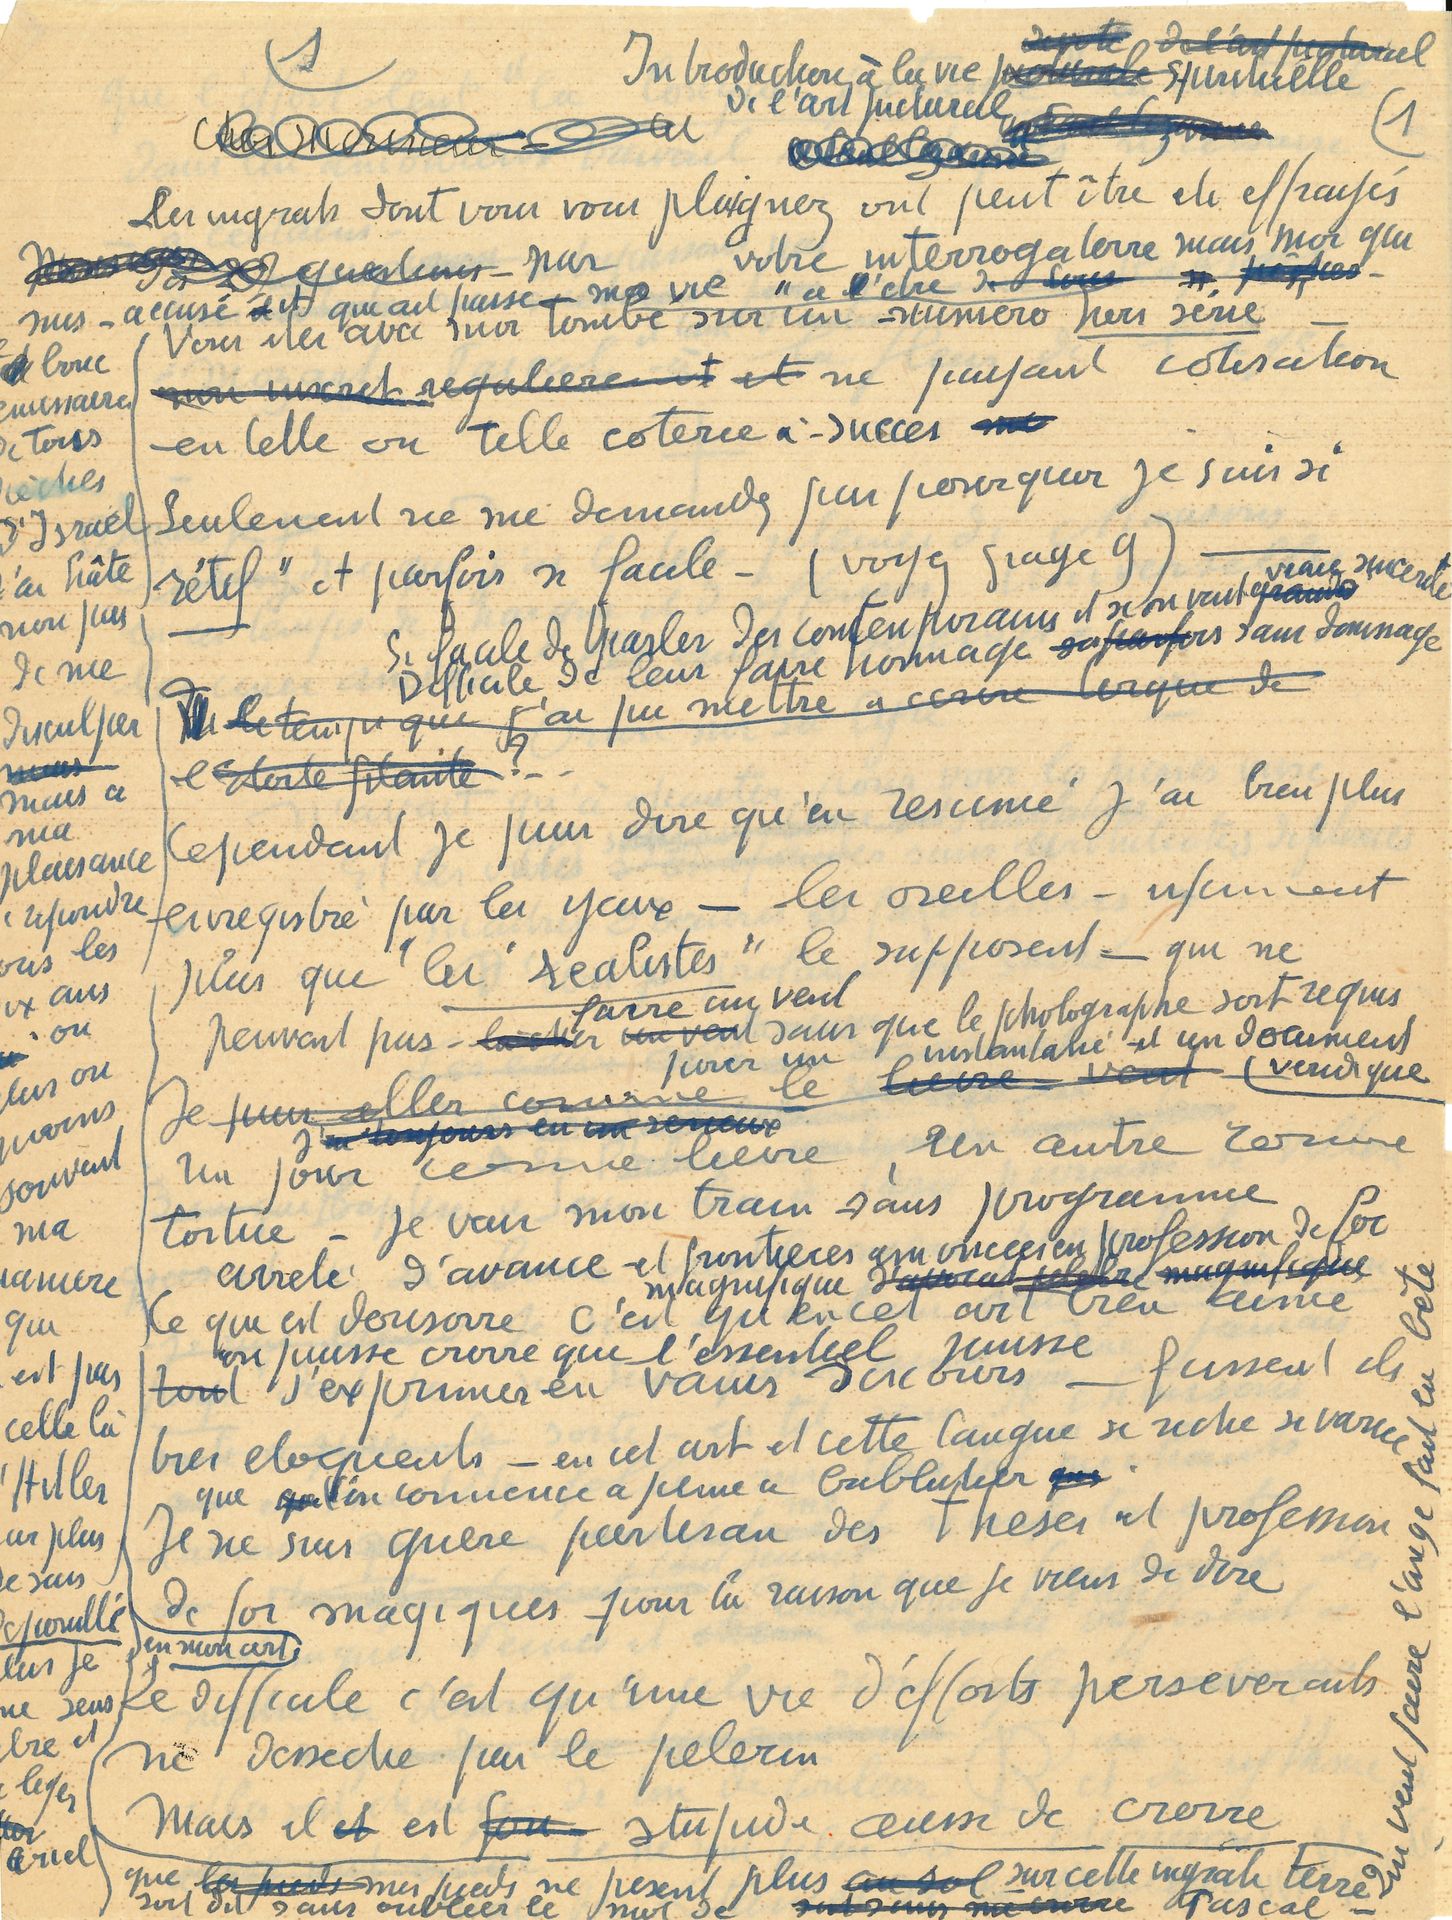 1
Introduction à la vie picturale spirituelle
de l'art pictural
(1
Les ingrats dont vous vous plaignez ont peut être été effrayés
par votre interrogatoire mais moi qui
suis accusé et qui ai passé ma vie "à l'être
Vous êtes avec moi tombé sur un numéro hors série
régulièrement et ne payant cotisation
en telle ou telle coterie à succès
Seulement ne me demandez pas pourquoi je suis si
rétif" et parfois si facile - (voyez page 9)
vraie sincérité
Si facile de parler des contemporains et si on veut grande
Difficile de leur faire hommage parfois sans dommage
le temps que j'ai pu mettre a
l' ?...
Cependant je puis dire qu'en resumé j'ai bien plus
enregistré par les yeux - les oreilles - infiniment
plus que "les "realistes" le supposent - qui ne
faire un vent
peuvent pas - lâcher un vent sans que le photographe soit requis
pour un instantané et un document
Je puis aller comme le lievre - vent (veridique
Un jour comme lievre, un autre comme
tortue - je vais mon train sans programme
arrelé d'avance et frontieres annoncées en profession de foi
magnifique magnifique
Ce qui est derisoire c'est qu'en cet art bien aimé
on puisse croire que l'essentiel puisse
tout s'exprimer en vains discours - fussent ils
tres eloquents - en cet art et cette langue si riche si variée
que l'on commence a peine a balbutier que
Je ne suis guère partisan des Theses et profession
de foi magiques pour la raison que je viens de dire
en mon art
Le difficile c'est qu'une vie d'éfforts perseverants
ne desseche pas le pelerin
Mais il et est fou stupide aussi de croire
que les pieds mes pieds ne pesent plus au sol sur cette ingrate terre
soit dit sans oublier le mot de Pascal -
bouc
emissaire
de tous
pêches
d'Israel
j'ai hâte
non pas
de me
disculper
mais
mais a
ma
plaisance
repondre
tous les
ans
ou
plus ou
moins
souvent
ma
maniere
qui
est pas
celle là
d'Hitler
plus
je suis
depouillé
plus je
me sens
libre et
leger
qui veut faire l'ange fait la bête